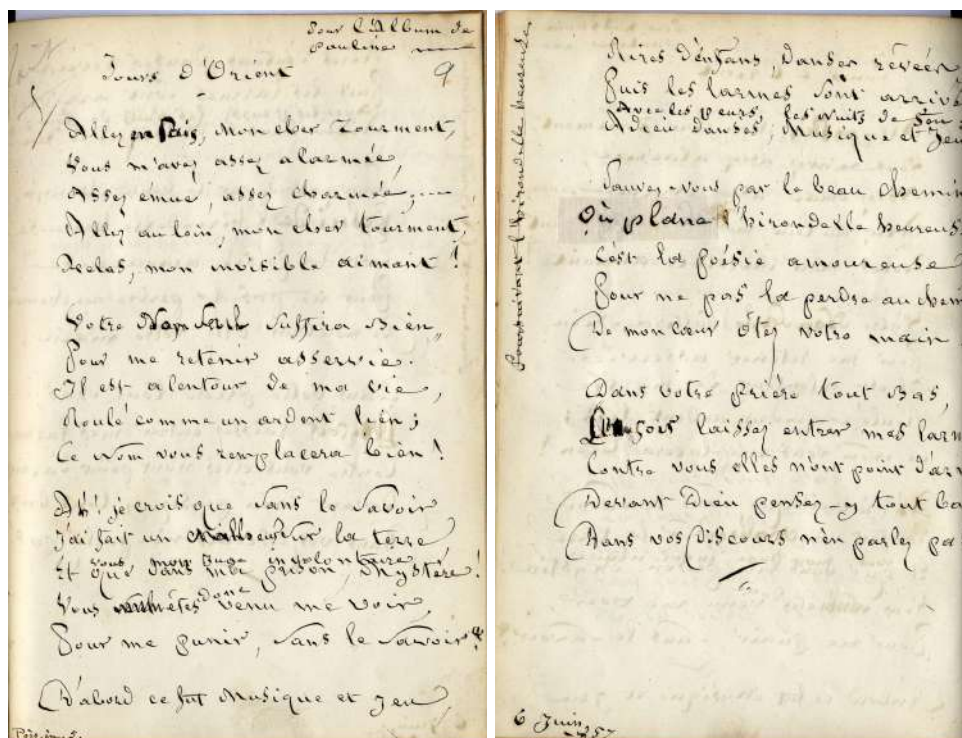 Pour l'Album de
Pauline
Jours d'Orient
9
Allez en paix, mon cher tourment,
Vous m'avez assez alarmée,
Assez émue, assez charmée;
Allez au loin, mon cher tourment,
Hélas, mon invisible aimant !
Votre Nom seul suffira bien,
Pour me retenir asservie.
Il est alentour de ma vie,
Roulé comme un ardent lien ;
Ce Nom vous remplacera bien !
Ah ! je crois que sans le savoir
J'ai fait un malheur sur la terre
vous mon juge involontaire
Et que dans ma prison, mystère !
Vous êtes donc venu me voir
Pour me punir, sans le savoir ?
D'abord ce fut Musique et jeu
Poursuivant l'hirondelle heureuse
Rires d'enfans, danses rêvées
Puis les larmes sont arrivé
Avec les peurs, les nuits de feu
Adieu danses, Musique et Jeu
Sauvez-vous par le beau chemin
Où plane l'hirondelle heureus
C'est la poésie amoureuse
Pour ne pas la perdre au chem
De mon cœur ôtez votre main
Dans votre prière tout bas,
laissez entrer mes larm
Contre vous elles n'ont point d'ar
Devant Dieu pensez-y tout ba
Dans vos discours n'en parlez pa
6 Juin
57